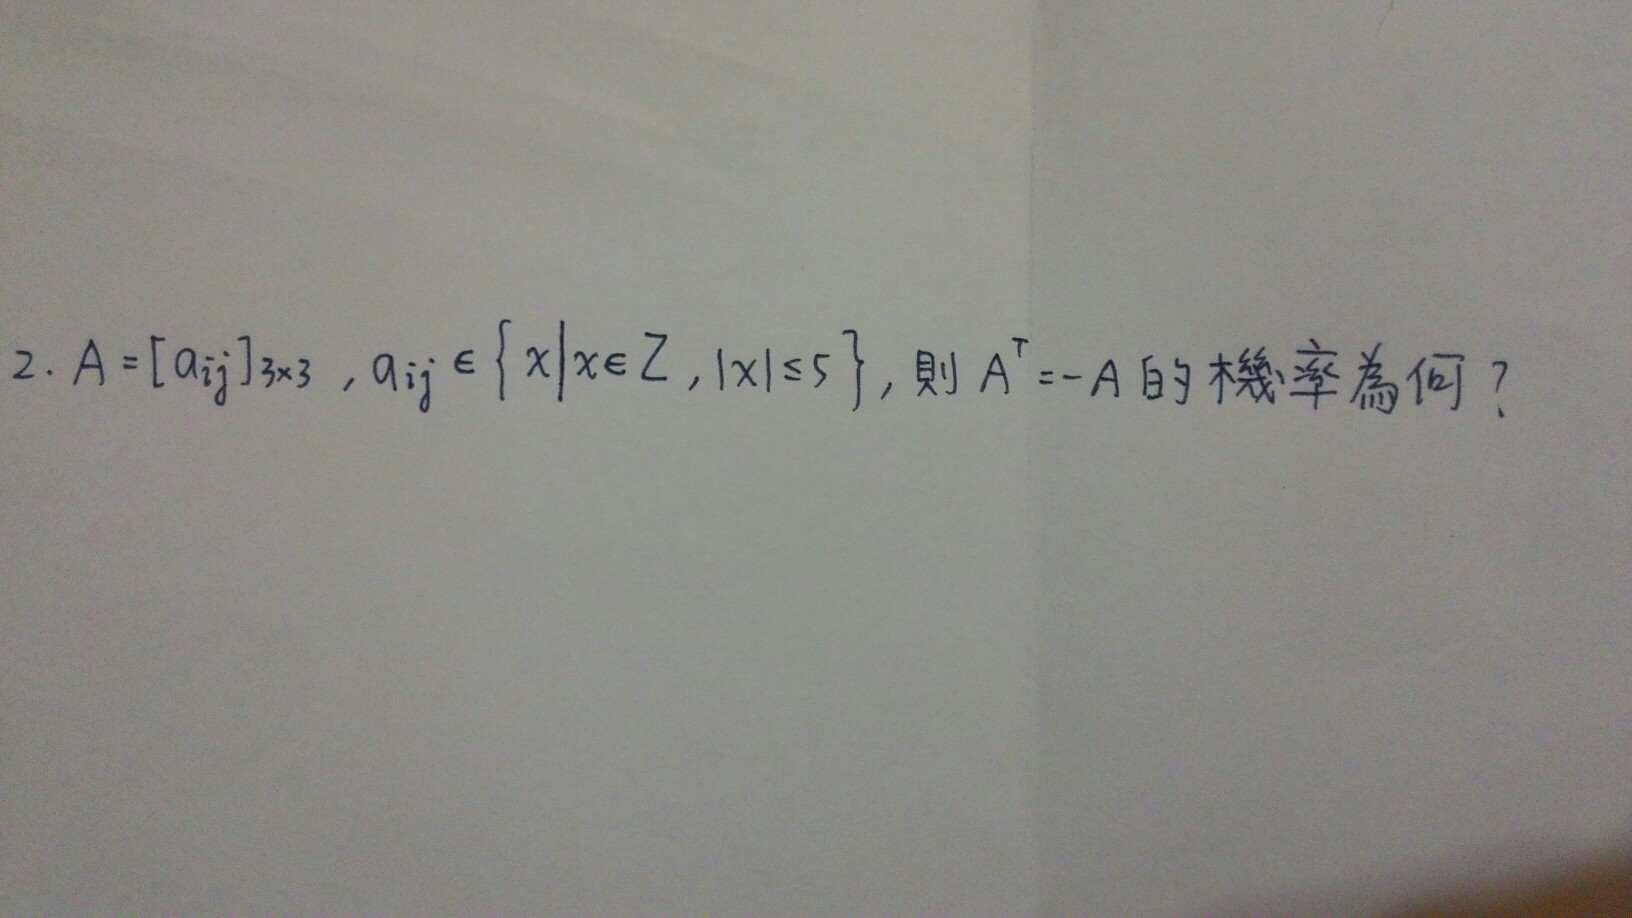 2. A = [aij]3×3 , aij ∈ {x|x∈Z, |x|≤5}, 則 Aᵀ = -A 的機率為何?